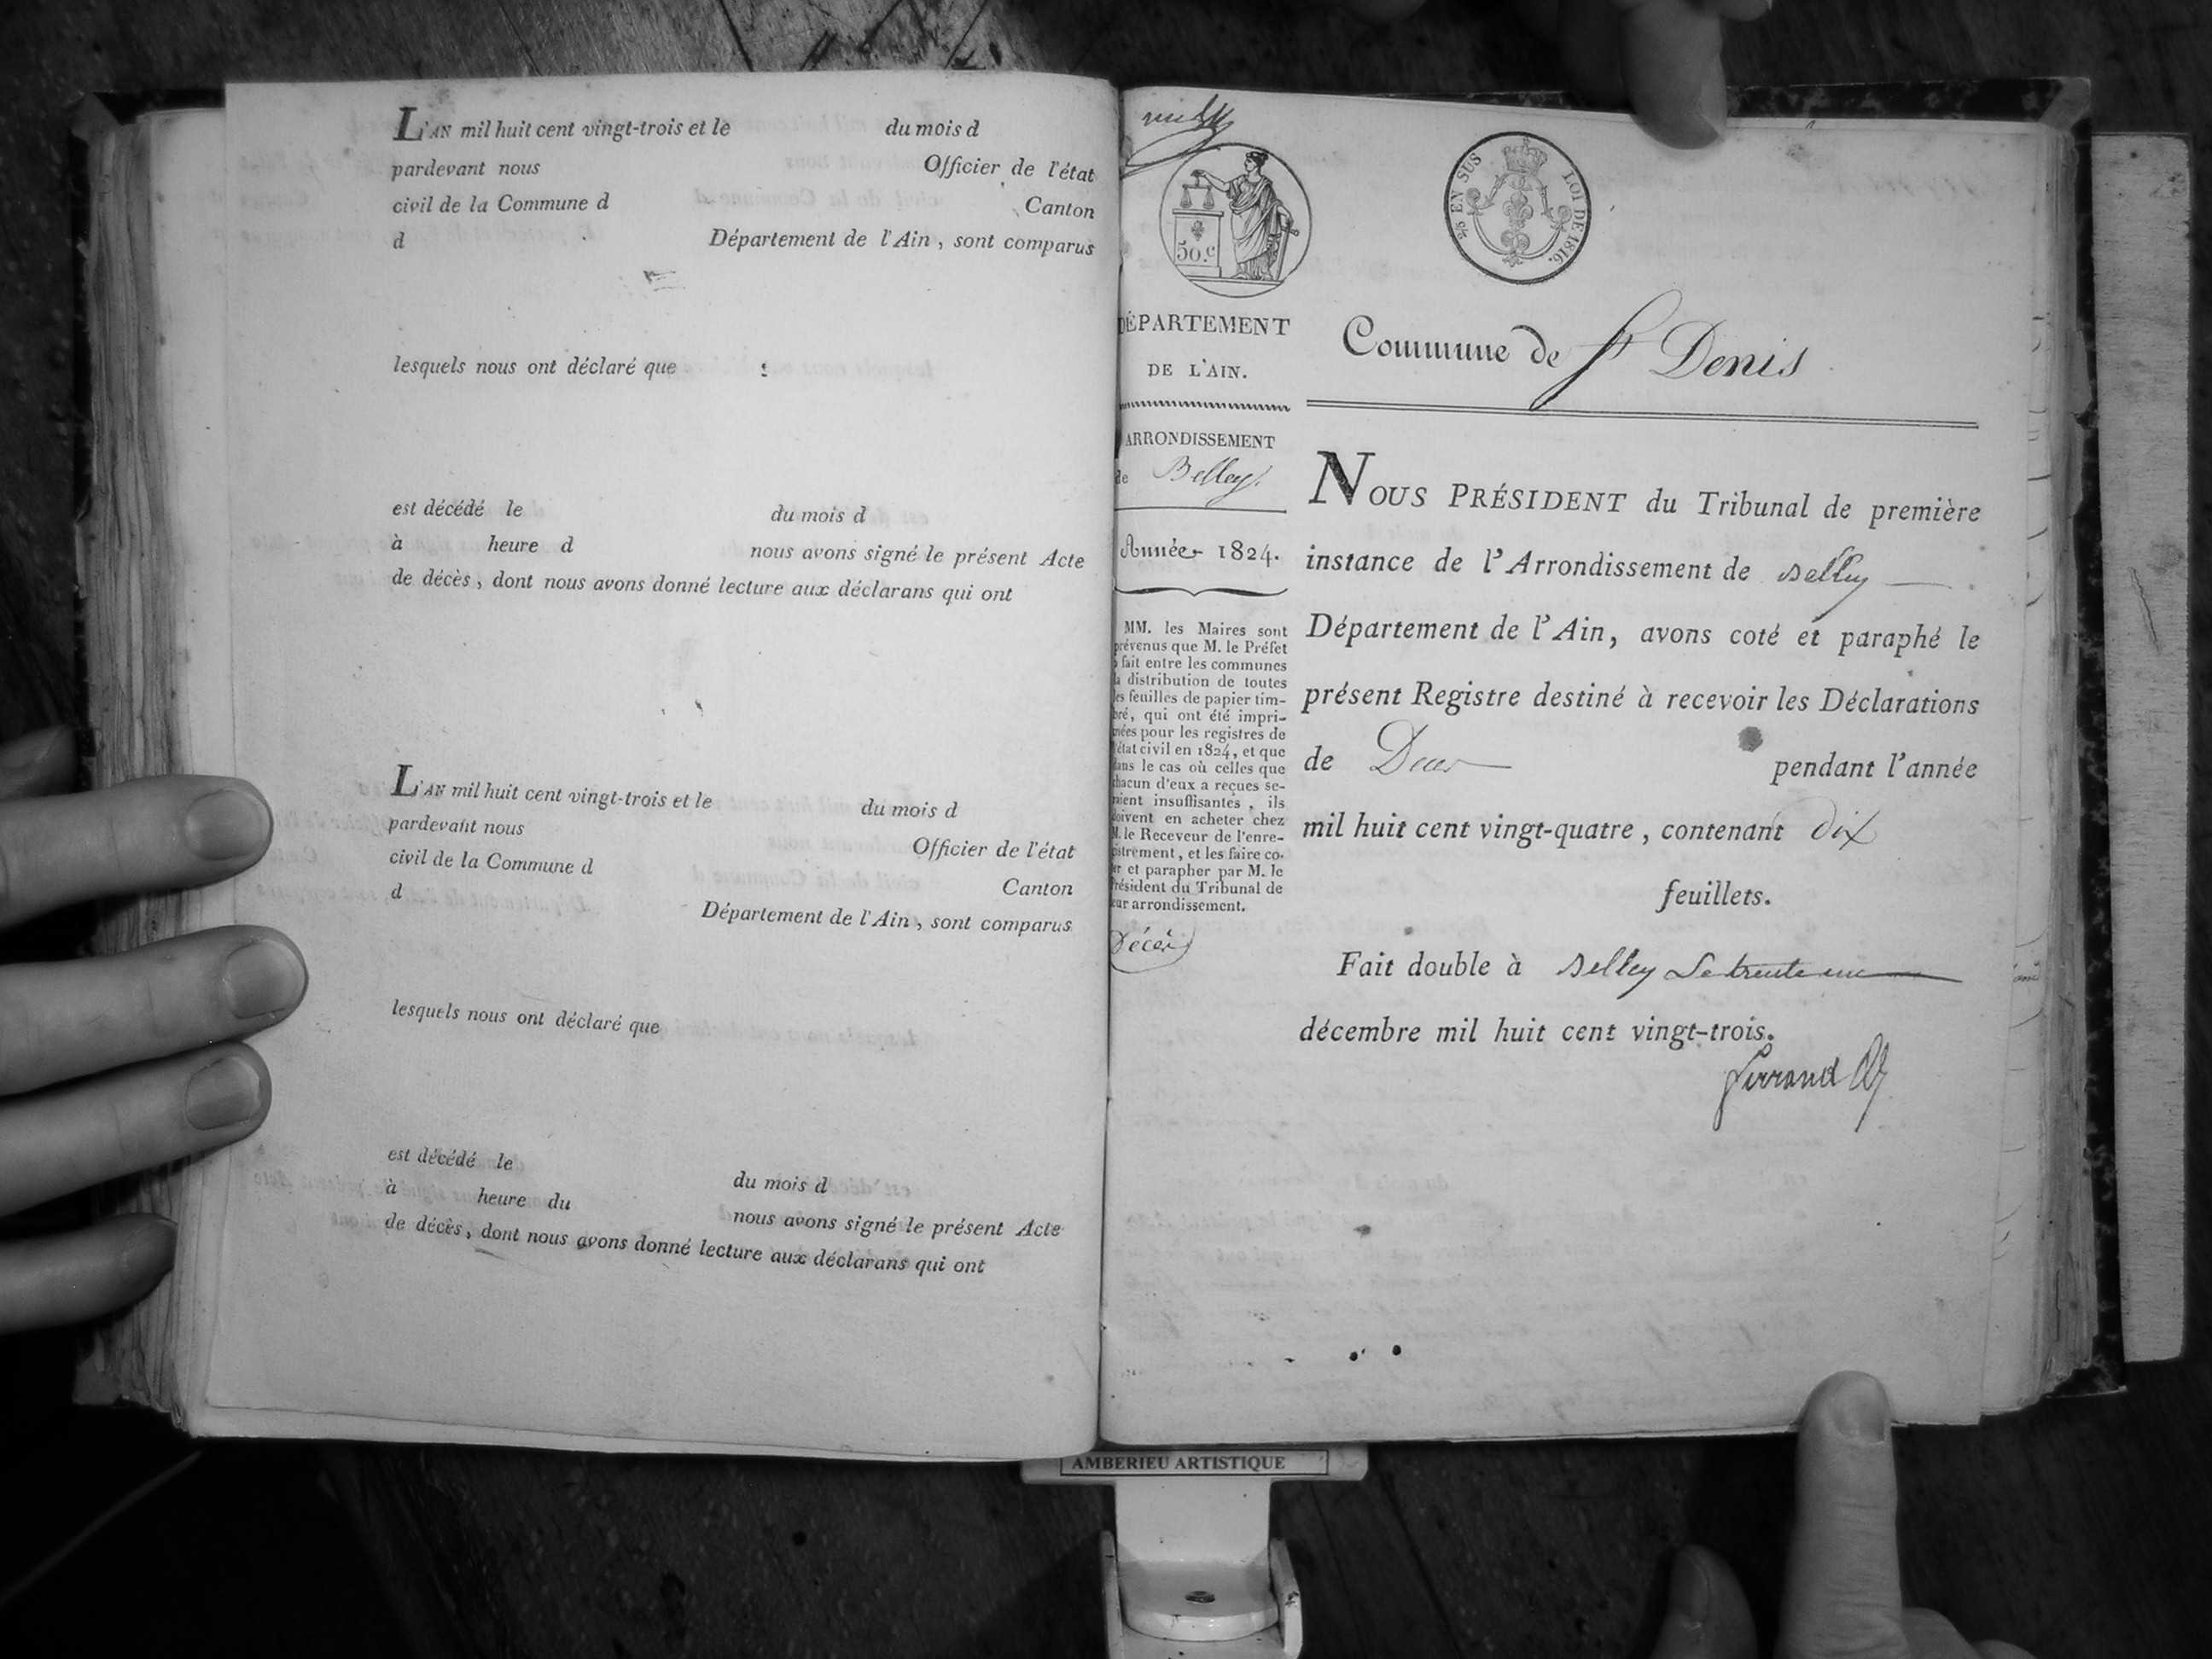 L'AN mil huit cent vingt-trois et le du mois d
pardevant nous Officier de l'état
civil de la Commune d Canton
d Département de l'Ain, sont comparus
lesquels nous ont déclaré que
est décédé le du mois d
à heure d nous avons signé le présent Acte
de décès, dont nous avons donné lecture aux déclarans qui ont
L'AN mil huit cent vingt-trois et le du mois d
pardevant nous Officier de l'état
civil de la Commune d Canton
d Département de l'Ain, sont comparus
lesquels nous ont déclaré que
est décédé le du mois d
à heure du nous avons signé le présent Acte
de décès, dont nous avons donné lecture aux déclarans qui ont
50.c
EN SUS LOI DE 1816.
DÉPARTEMENT
DE L'AIN.
ARRONDISSEMENT
de Belley
Année 1824.
MM. les Maires sont
prévenus que M. le Préfet
a fait entre les communes
la distribution de toutes
les feuilles de papier tim-
bré, qui ont été impri-
mées pour les registres de
l'état civil en 1824, et que
dans le cas où celles que
chacun d'eux a reçues se-
raient insuffisantes, ils
doivent en acheter chez
M. le Receveur de l'enre-
gistrement, et les faire co-
ter et parapher par M. le
Président du Tribunal de
leur arrondissement.
Décès
Commune de St Denis
NOUS PRÉSIDENT du Tribunal de première
instance de l'Arrondissement de Belley
Département de l'Ain, avons coté et paraphé le
présent Registre destiné à recevoir les Déclarations
de Deces pendant l'année
mil huit cent vingt-quatre, contenant dix
feuillets.
Fait double à Belley Le trente un
décembre mil huit cent vingt-trois.
Ferrand
AMBERIEU ARTISTIQUE